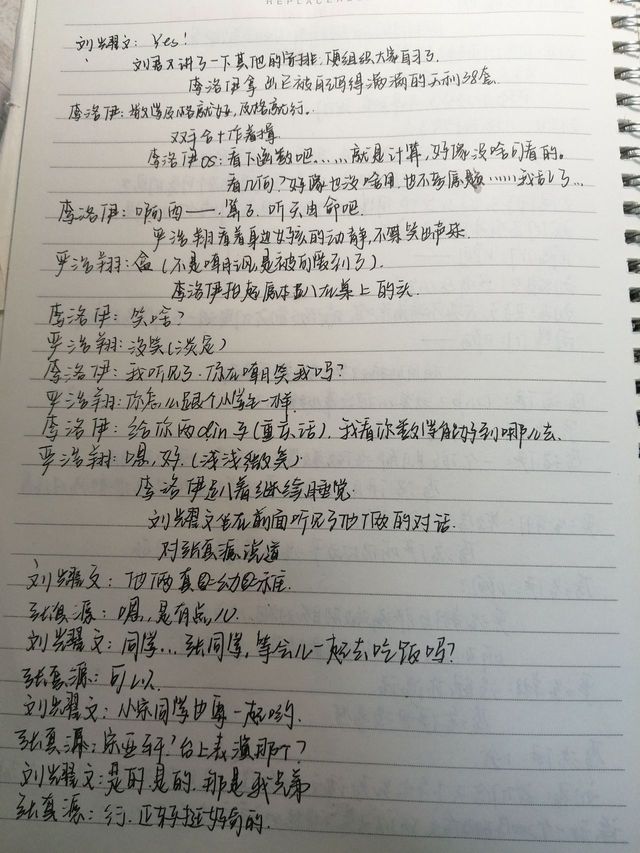 REPLACEABLE
刘耀文：Yes！
刘君又讲了一下其他的安排，便组织大家自习了。
李洛伊拿出已被自己写得满满的天利38套.
李洛伊：数学及格就好，及格就行。
双手合十作着揖
李洛伊OS：看下函数吧……就是计算，好像没啥可看的。
看几何？好像也没啥用，也不到原题……我Emo了…
李洛伊：啊西——算了，听天由命吧.
严浩翔看着身边女孩的动静，不禁笑出声来.
严浩翔：盒（不是嘲讽，是被可爱到了）.
李洛伊抬起原本趴在桌上的头.
李洛伊：笑啥？
严浩翔：没笑（淡定）
李洛伊：我听见了，你在嘲笑我吗？
严浩翔：你怎么跟个小学生一样.
李洛伊：给你两din子（重庆话）.我看你数学能好到哪儿去.
严浩翔：嗯，好.（浅浅微笑）.
李洛伊趴着继续睡觉.
刘耀文坐在前面听见了他俩的对话.
对张真源说道
刘耀文：他俩真是幼稚.
张真源：嗯，是有点儿.
刘耀文：同学…张同学，等会儿一起去吃饭吗？
张真源：可以.
刘耀文：小宋同学也要一起哟.
张真源：宋亚轩？台上表演那个？
刘耀文：是的是的.那是我兄弟
张真源：行.正好挺好奇的.